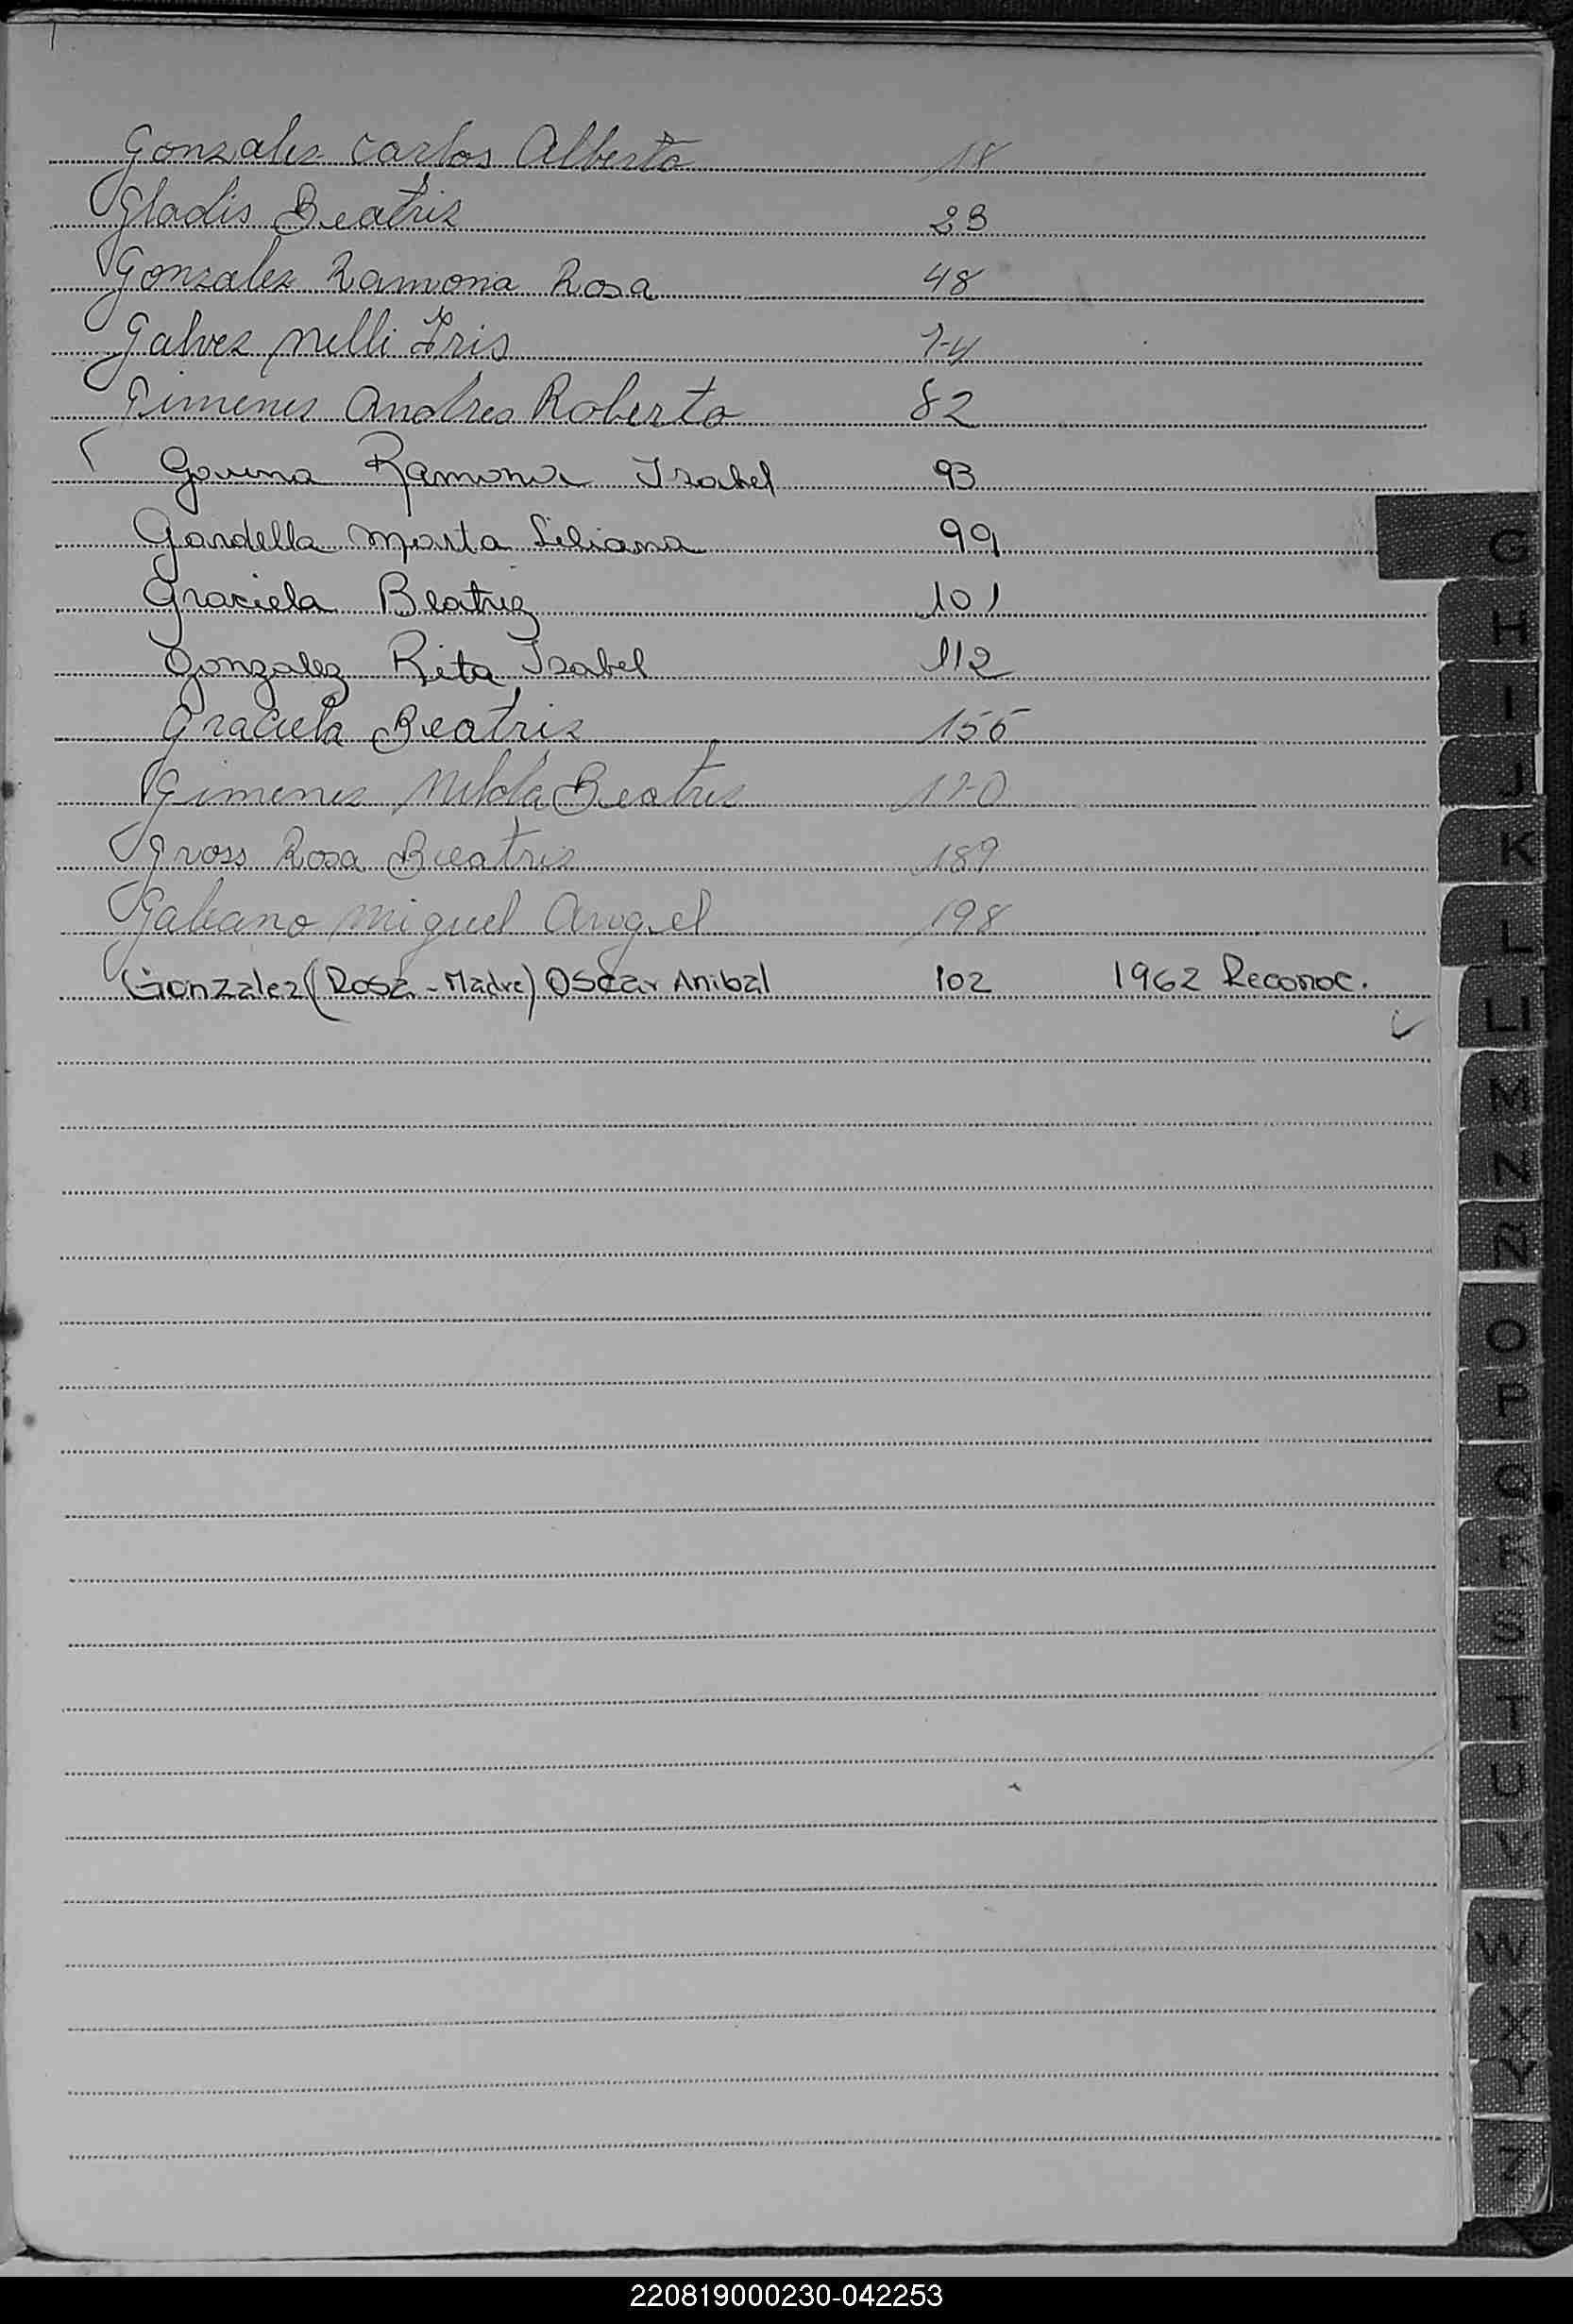 Gonzalez Carlos Alberto 18
Gladis Beatriz 23
Gonzalez Ramona Rosa 48
Galvez Nelli Iris 74
Gimenes Andres Roberto 82
Ramona Isabel 93
Gardella Marta Liliana 99
Graciela Beatriz 101
Gonzalez Rita Isabel 112
Graciela Beatriz 155
Gimenez Nilda Beatris
Gross Rosa Beatriz 189
Galeano Miguel Angel 198
Gonzalez (Rosa - Madre) Oscar Anibal 102 1962 Reconoc.
G
H
I
J
K
L
LL
M
N
Ñ
O
P
Q
R
S
T
U
V
W
X
Y
Z
220819000230-042253